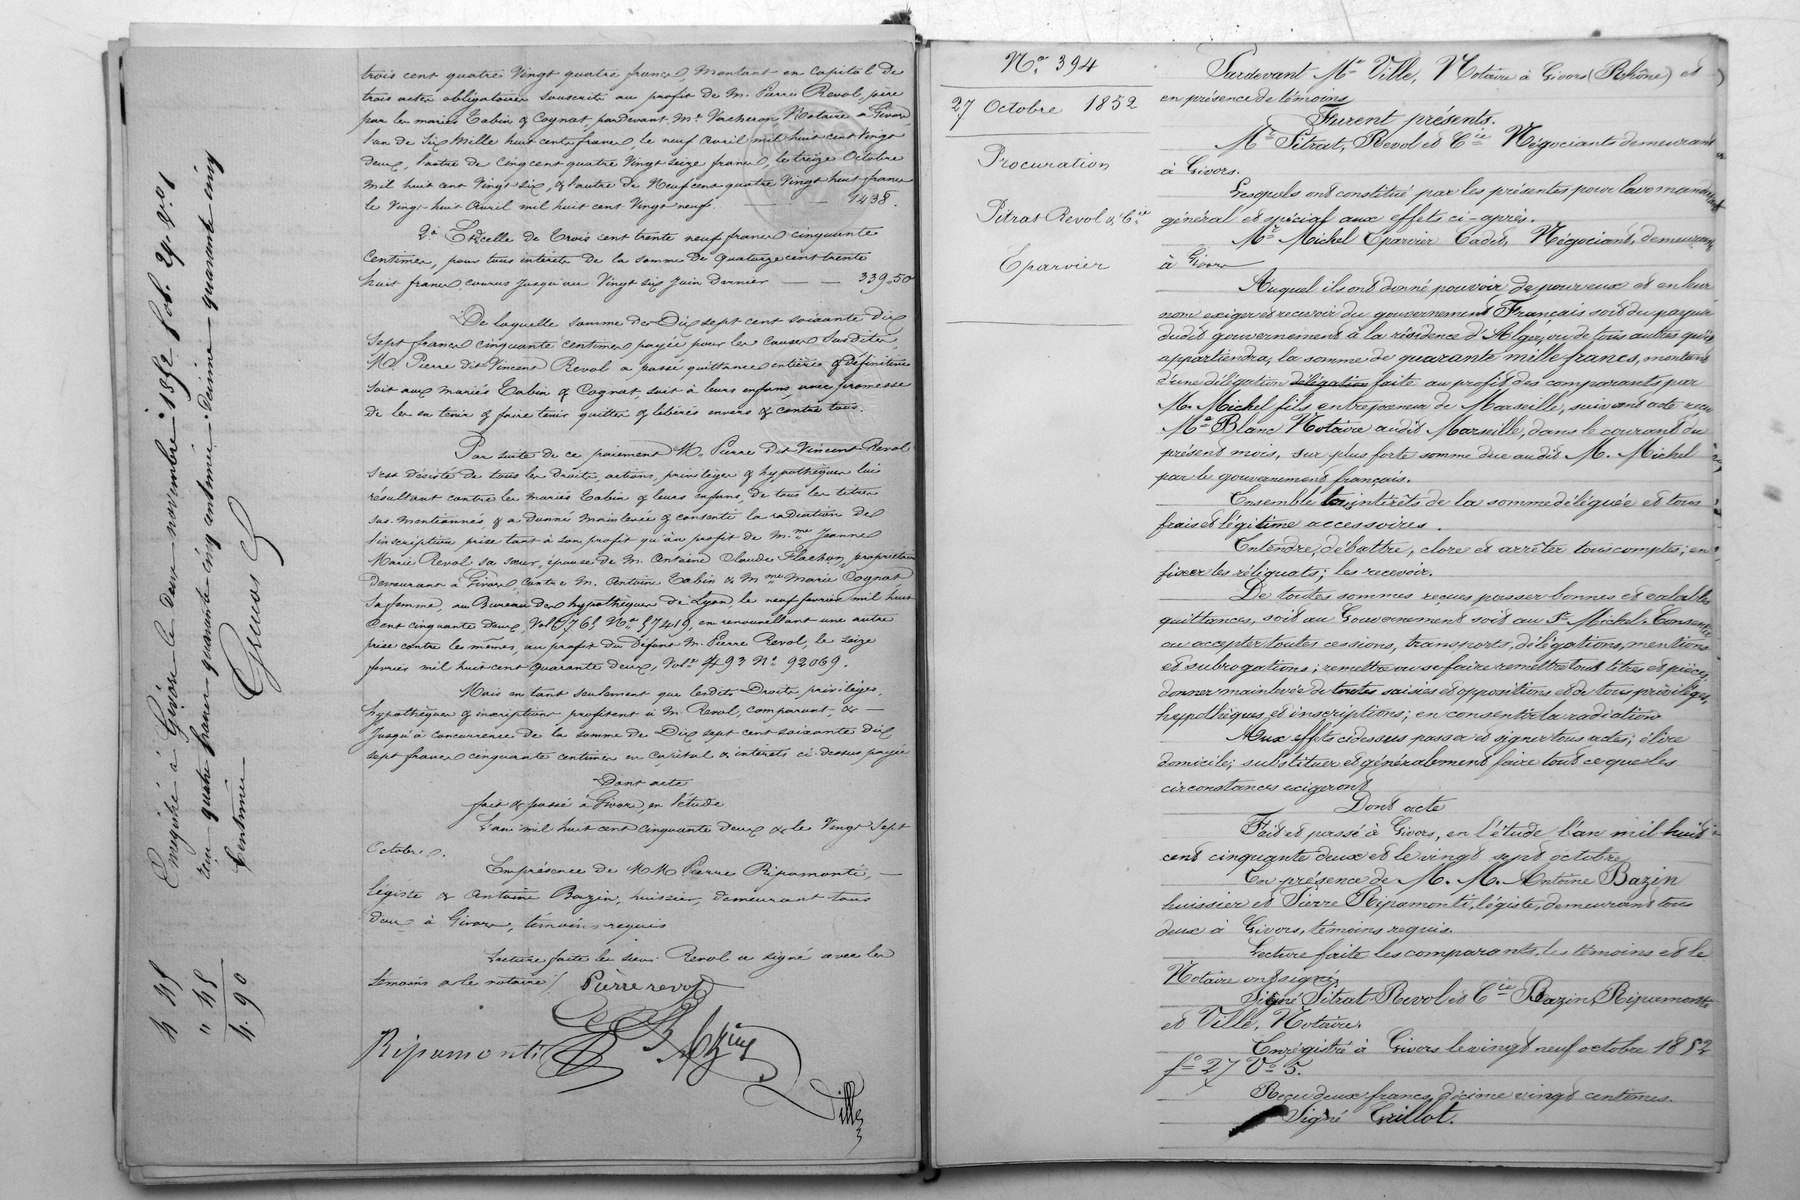 trois cent quatre Vingt quatre francs, Montant en Capital de
trois actes obligatoires souscrits au profit de M. Pierre Revol, père
par les mariés Tabin & Cognat, pardevant Me Vacheron Notaire à Givors
l'un de Six Mille huit cents francs, le neuf Avril mil huit cent Vingt
deux, l'autre de Cinq cent quatre Vingt seize francs, le treize Octobre
mil huit cent Vingt six, & l'autre de Neuf cent quatre Vingt huit francs
le Vingt-huit Avril mil huit cent Vingt neuf. 1438.
2° Et celle de Trois cent trente neuf francs cinquante
Centimes, pour tous intérêts de la somme de quatorze cent trente
huit francs, courus jusqu'au Vingt six Juin dernier 339.50
De laquelle somme de Dix sept cent soixante dix
sept francs cinquante centimes payée pour les Causes Susdites,
M. Pierre dit Vincent Revol a passé quittance entière & définitive
soit aux mariés Tabin & Cognat, soit à leurs enfans, avec promesse
de les en tenir & faire tenir quittes & libérés envers & contre tous.
Par suite de ce paiement M. Pierre dit Vincent Revol
s'est désisté de tous les Droits, actions, privilèges & hypothèques lui
résultant contre les mariés Tabin & leurs enfans, de tous les titres
sus-mentionnés & a donné mainlevée & consenti la radiation de
l'inscription prise tant à son profit qu'au profit de Mme Jeanne
Marie Revol sa sœur, épouse de M. Antoine Claude Flachon, propriétaire
demeurant à Givors, contre M. Antoine Tabin & Mme Marie Cognat
sa femme, au Bureau des hypothèques de Lyon, le neuf février mil huit
Cent cinquante deux, Vol. 765 No 57419, en renouvellant une autre
prise contre les mêmes, au profit du défunt M. Pierre Revol, le seize
février mil huit cent quarante deux, Vol. 493 No 92069.
Mais en tant seulement que lesdits Droits, privilèges,
hypothèques & inscriptions profitent à M. Revol, comparant, &
jusqu'à concurrence de la somme de Dix sept cent soixante dix
sept francs cinquante centimes en Capital & intérêts ci-dessus payée
Dont acte
fait & passé à Givors, en l'étude
L'an mil huit cent cinquante Deux & le Vingt Sept
Octobre.
En présence de MM Pierre Ripamonti,
légiste & Antoine Bazin, huissier, demeurant tous
deux à Givors, témoins requis
Lecture faite le sieur Revol a signé avec les
témoins & le notaire
Pierre revol
Ripamonti Bazin
Ville
Enregistré à Givors le deux novembre 1852 fol. 29. Vo. 1
reçu quatre francs quarante cinq centimes décime quarante cinq
Centimes
4 45
" 45
4.90
No 394
27 Octobre 1852
Procuration
Pitrat Revol & Cie
Eparvier
Pardevant Me Ville, Notaire à Givors (Rhône) et
en présence de témoins
Furent présents.
Mrs Pitrat, Revol et Cie Négociants demeurant
à Givors.
Lesquels ont constitué par les présentes pour leur mandataire
général et spécial aux effets ci-après.
Mr Michel Eparvier Cadet, Négociant, demeurant
à Givors
Auquel ils ont donné pouvoir de pour eux et en leur
nom exiger et recevoir du gouvernement Français soit du payeur
dudit gouvernement à la résidence d'Alger, ou de tous autres qu'il
appartiendra, la somme de quarante mille francs, montant
d'une délégation délégation faite au profit des comparants par
M. Michel fils, entrepreneur de Marseille, suivant acte reçu
Me Blanc Notaire audit Marseille, dans le courant du
présent mois, sur plus forte somme due audit M. Michel
par le gouvernement français.
Ensemble les intérêts de la somme déléguée et tous
frais et légitime accessoires.
Entendre, débattre, clore et arrêter tous comptes; en
fixer les réliquats; les recevoir.
De toutes sommes reçues passer bonnes et valables
quittances, soit au Gouvernement soit au Sr Michel. Consentir
ou accepter toutes cessions, transports, délégations, mentions
et subrogations; remettre ou se faire remettre tous titres et pièces,
donner mainlevée de toutes saisies et oppositions et de tous privilèges,
hypothèques et inscriptions; en consentir la radiation
Aux effets ci dessus passer et signer tous actes; élire
domicile; substituer et généralement faire tout ce que les
circonstances exigeront
Dont acte
Fait et passé à Givors, en l'étude l'an mil huit
cent cinquante deux et le vingt sept octobre
En présence de M. M. Antoine Bazin
huissier et Pierre Ripamonti, légiste, demeurant tous
deux à Givors, témoins requis.
Lecture faite les comparants, les témoins et le
Notaire ont signé,
Signé Pitrat Revol et Cie Bazin, Ripamonti
et Ville, Notaire.
Enrégistré à Givors le vingt neuf octobre 1852
fo 27 Vo 5.
Reçu deux francs, décime vingt centimes.
Signé Guillot.